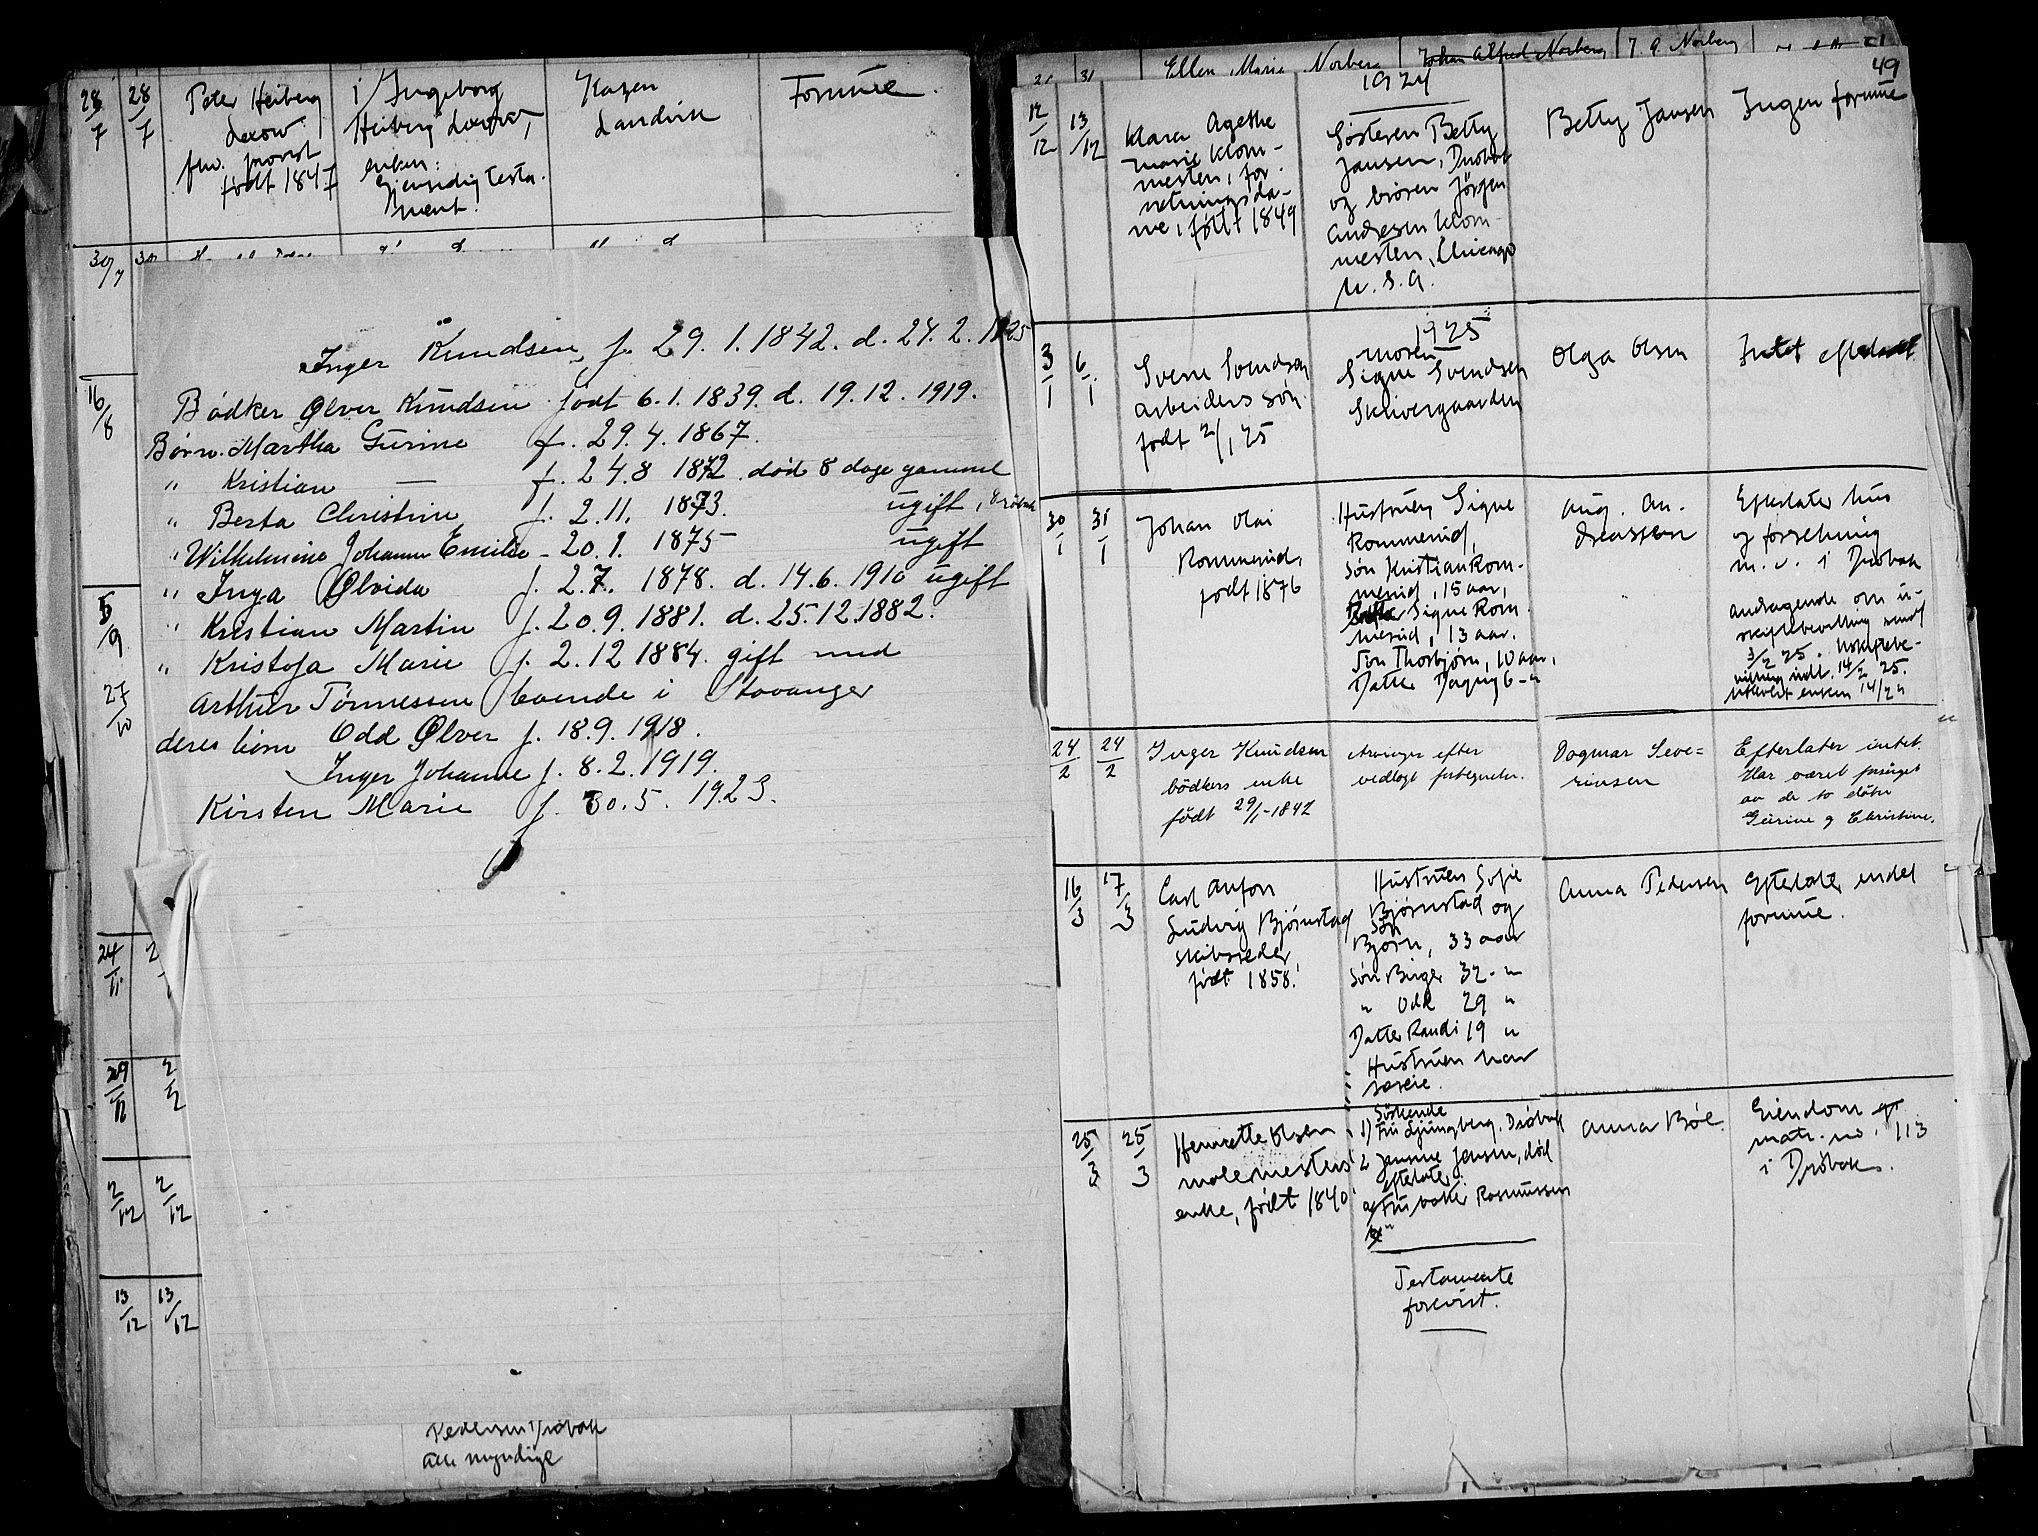 28/7
28/7
Peter Heiberg
Lexow
fhv. provst
født 1847
Ingeborg
Heiberg Lexow,
enken.
Gjensidig testa-
ment.
Hagen
Landvik
Formue.
30/7
30
16/8
5/9
27/10
24/11
29/11
2/12
2/12
13/12
13/12
Inger Knudsen, f. 29.1.1842. d. 24.2.1925
Bødker Ølver Knudsen født 6.1.1839. d. 19.12.1919.
Børn. Martha Gurine f. 29.4.1867.
" Kristian — f. 24.8 1872 død 8 dage gammel
" Berta Christine f. 2.11. 1873. ugift, Drøbak
" Wilhelmine Johanne Emilie - 20.1. 1875 ugift
" Inga Ølvida f. 2.7. 1878. d. 14.6.1910 ugift
" Kristian Martin f. 20.9.1881. d. 25.12.1882.
" Kristofa Marie f. 2.12 1884. gift med
Arthur Tønnessen boende i Stavanger
deres børn Odd Ølver f. 18.9.1918.
Inger Johanne f. 8.2.1919.
Kirsten Marie f. 30.5. 1923.
Pedersen Drøbak
alle myndige
Ellen Marie Norberg
Johan Alfred Norberg
J. A. Norberg
49
1924
12/12
13/12
Klara Agethe
Marie Klom-
mesten, for-
retningsda-
me, født 1849
Søsteren Betty
Jansen, Drøbak
og broren Jørgen
Andresen Klom-
mesten, Chicago
U.S.A.
Betty Jansen
Ingen formue
1925
3/1
6/1
Sverre Svendsen
arbeiders søn
født 2/1 25
Moren
Signe Svendsen
Skrivergaarden
Olga Olsen
Intet efterladt
30/1
31/1
Johan Olai
Rommerud,
født 1876
Hustruen Signe
Rommerud,
Søn Kristian Rom-
merud, 15 aar,
Signe Rom-
merud, 13 aar.
Søn Thorbjørn, 10 aar,
Datter Dagny 6 - "
Aug. An-
dreassen
Efterlater hus
og forretning
m.v. i Drøbak
Andragende om u-
skiftebevilling
3/2 25. Uskiftebe-
villing indt. 14/2 25.
utlevert enken 14/2 "
24/2
24/2
Inger Knudsen
bødkers enke
født 29/1-1842
Arvinger efter
vedlagt fortegnelse.
Dagmar Seve=
rinsen
Efterlater intet.
Har været forsørget
av de to døtre
Gurine og Christine.
16/3
17/3
Carl Anton
Ludvig Bjørnstad
skibsreder
født 1858.
Hustruen Sofie
Bjørnstad og
Søn
Bjørn, 33 aar
Søn Birger 32 - "
" Odd 29 "
Datter Randi 19 "
Hustruen har
særeie.
Anna Pedersen
Efterlater endel
formue.
25/3
25/3
Henriette Olsen
malermesters
enke, født 1840
Søskende
1) Fru Ljungberg, Drøbak
2 Jensine Jensen, død
Efterlater:
a) Fru Rasmussen
b) "
Testamente
forevist.
Anna Bøe
Eiendom
matr. no. 113
i Drøbak.